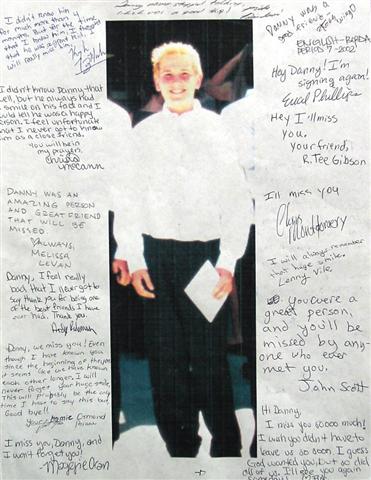 I didn't know him
for much more than 9
months. But for the time
that I knew him, I forgot
that he was a great
will really miss him.
I didn't know Danny that
well, but he always had
a smile on his face and I
could tell he was a happy
person. I feel unfortunate
that I never got to know
him as a close friend.
You will be in
my prayers.
Christa
McCann
DANNY WAS AN
AMAZING PERSON
AND GREAT FRIEND
THAT WILL BE
MISSED.
ALWAYS,
MELISSA
LEVAN
Danny, I feel really
bad that I never got to
say thank you for being one
of the best friends I have
ever had. Thank you.
Danny, we miss you! Even
though I have known you
since the beginning of
it seems like we have known
each other longer. I will
never forget your huge smile.
This will probably be the only
time I have to say this but
Good bye!!
Jamie Osmond
I miss you, Danny, and
I won't forget you!
Danny was a
ENGLISH-
PERIOD 7-2002
Hey Danny! I'm
signing again!
Euail Phillips
Hey I'll miss
you.
your friend,
R. Tee Gibson
I'll miss you
Chris Montgomery
I will always remember
that huge smile.
Lenny Vile
you were a
great person,
and you'll be
missed by any-
one who ever
met you.
John Scott
Hi Danny,
I miss you sooooo much!
I wish you didn't have to
leave us so soon. I guess
God wanted you, but so did
all of us. I'll see you again
someday!